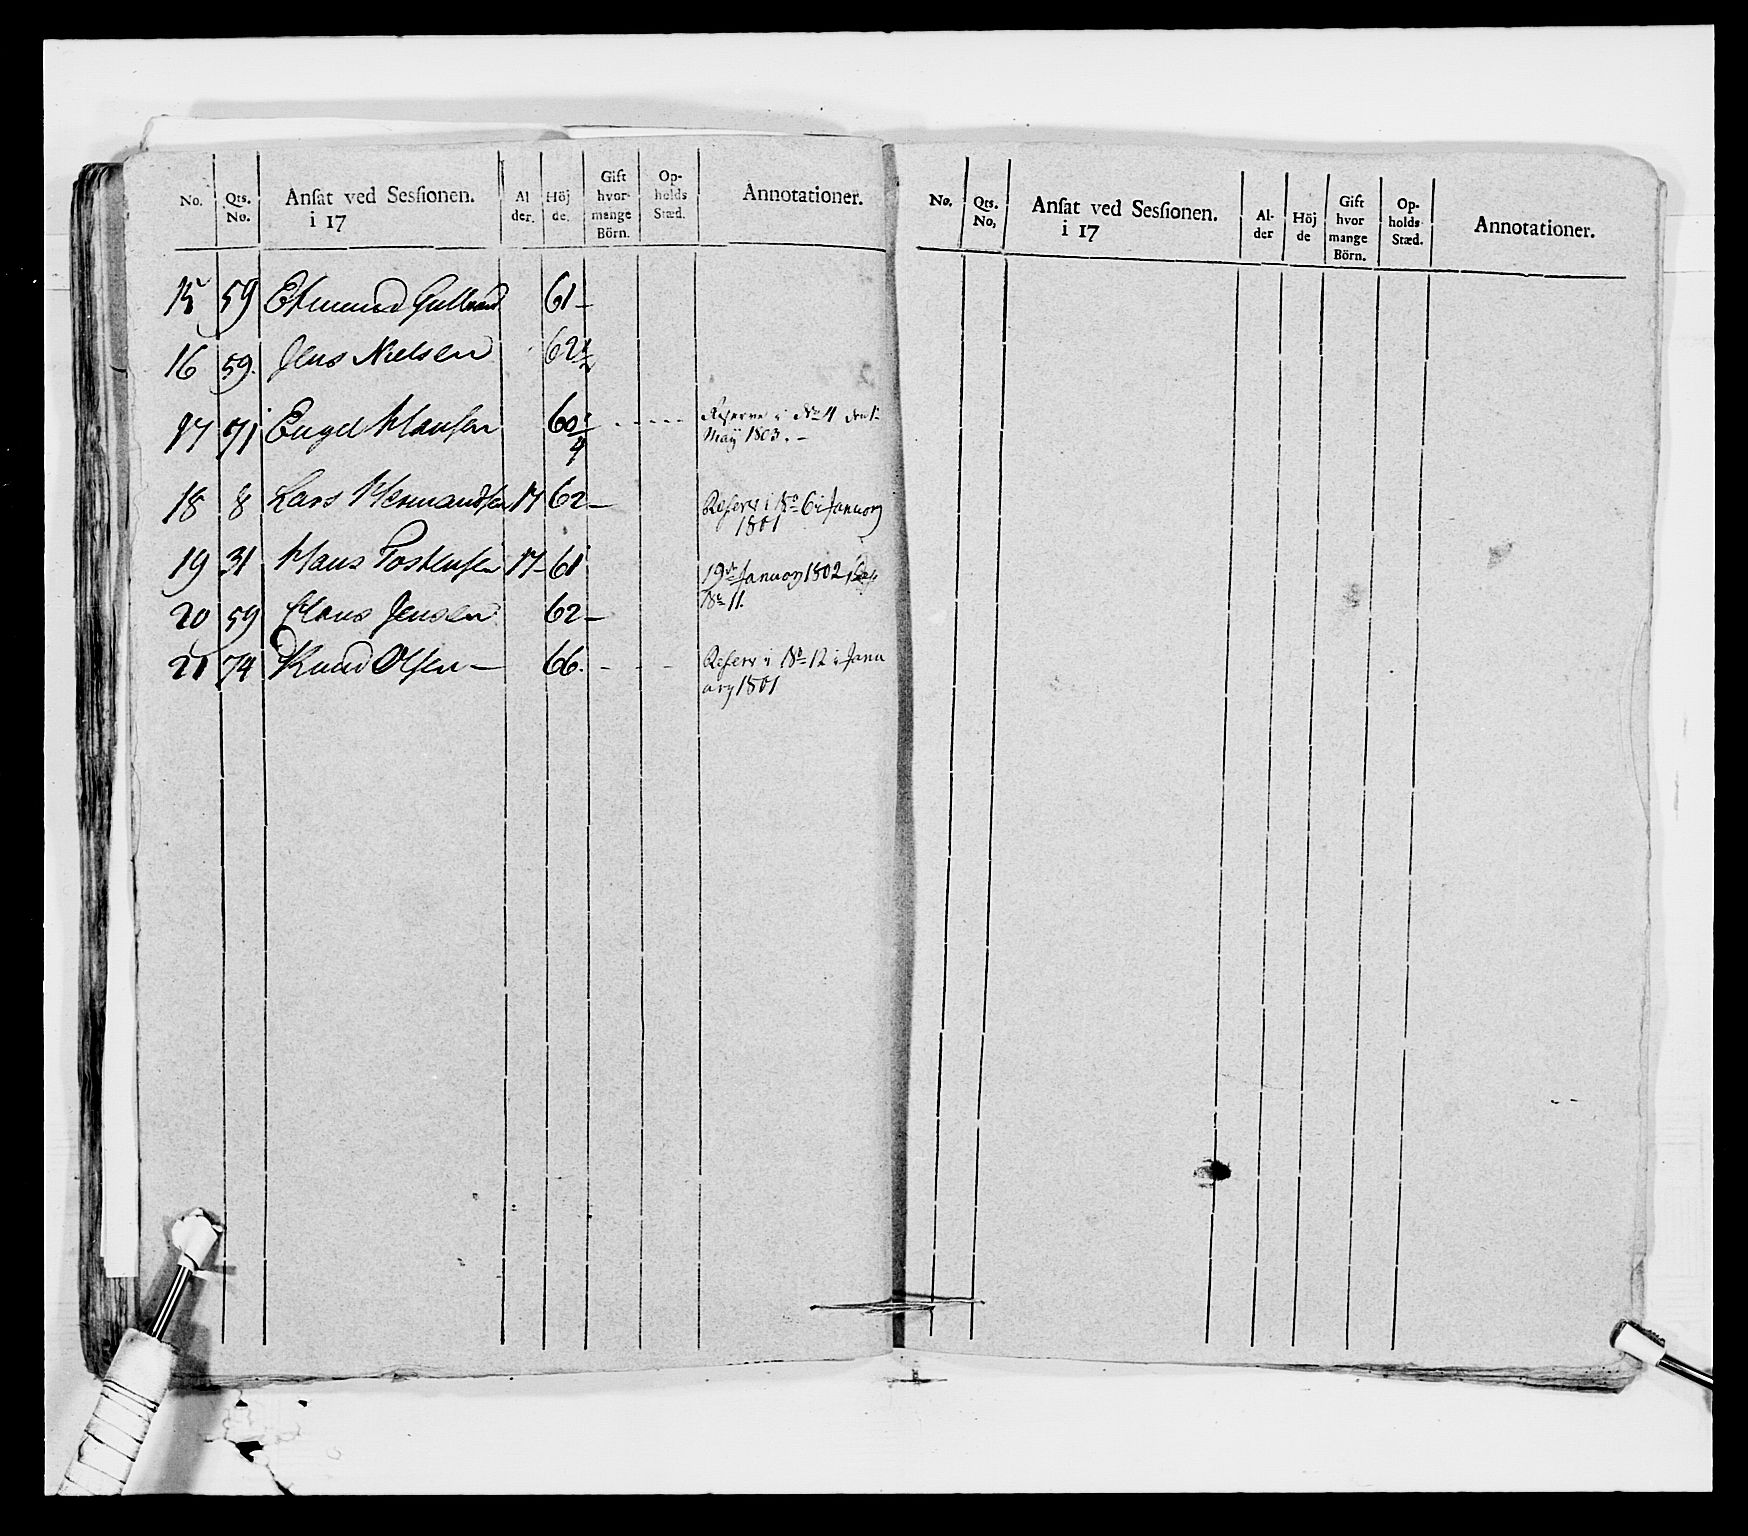 No. Qts. No. Ansat ved Sessionen. i 17 Al der. Höj de. Gift hvor- mange Börn. Op- holds Stæd. Annotationer.
15 59 Etmund Gulbrand 61 -
16 59. Jens Nielsen 62 1/2
17 71 Engel Hansen 60 1/4 - - - - Reserve i No 4 den 1te
Maij 1803. -
18 8 Lars Hermandsen 17 62 - Reserv i No 6 i January
1801
19 31 Hans Tostensen 17 - 61 19de January 1802
No 11.
20 59 Hans Jensen 62 -
21 74 Knud Olsen - 66. - - - Reserv i No 12 i Janu
ary 1801
No. Qts. No, Ansat ved Sessionen. i 17 Al- der Höj de Gift hvor mange Börn. Op- holds Stæd. Annotationer.